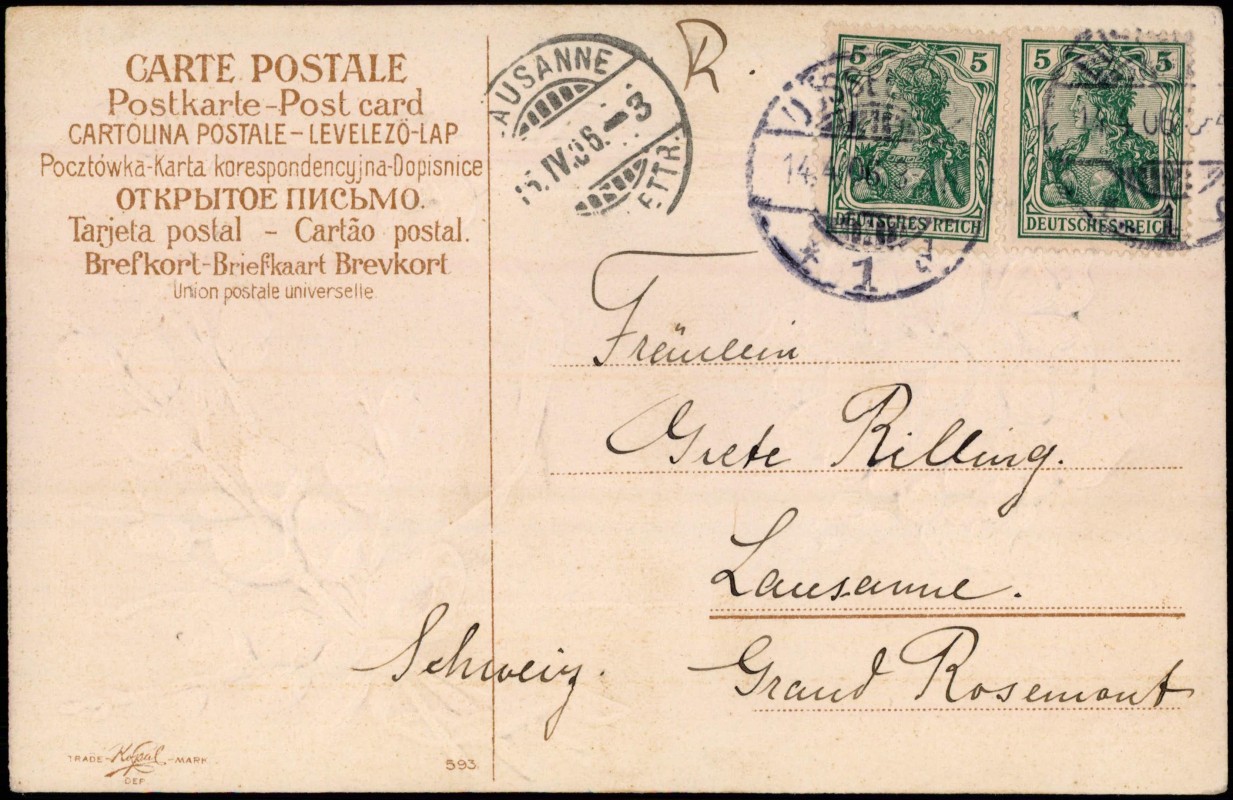 CARTE POSTALE
Postkarte-Post card
CARTOLINA POSTALE-LEVELEZŐ-LAP
Pocztówka-Karta korespondencyjna-Dopisnice
ОТКРЫТОЕ ПИСЬМО.
Tarjeta postal - Cartão postal.
Brefkort-Briefkaart Brevkort
Union postale universelle
AUSANNE
IV.06.-3
LETTR.
R.
5 5
DEUTSCHES REICH
5 5
DEUTSCHES REICH
14.4.06. 3
* 1 d
Fräulein
Grete Rilling.
Lausanne.
Grand Rosemont
Schweiz.
TRADE- -MARK
DEP.
593.